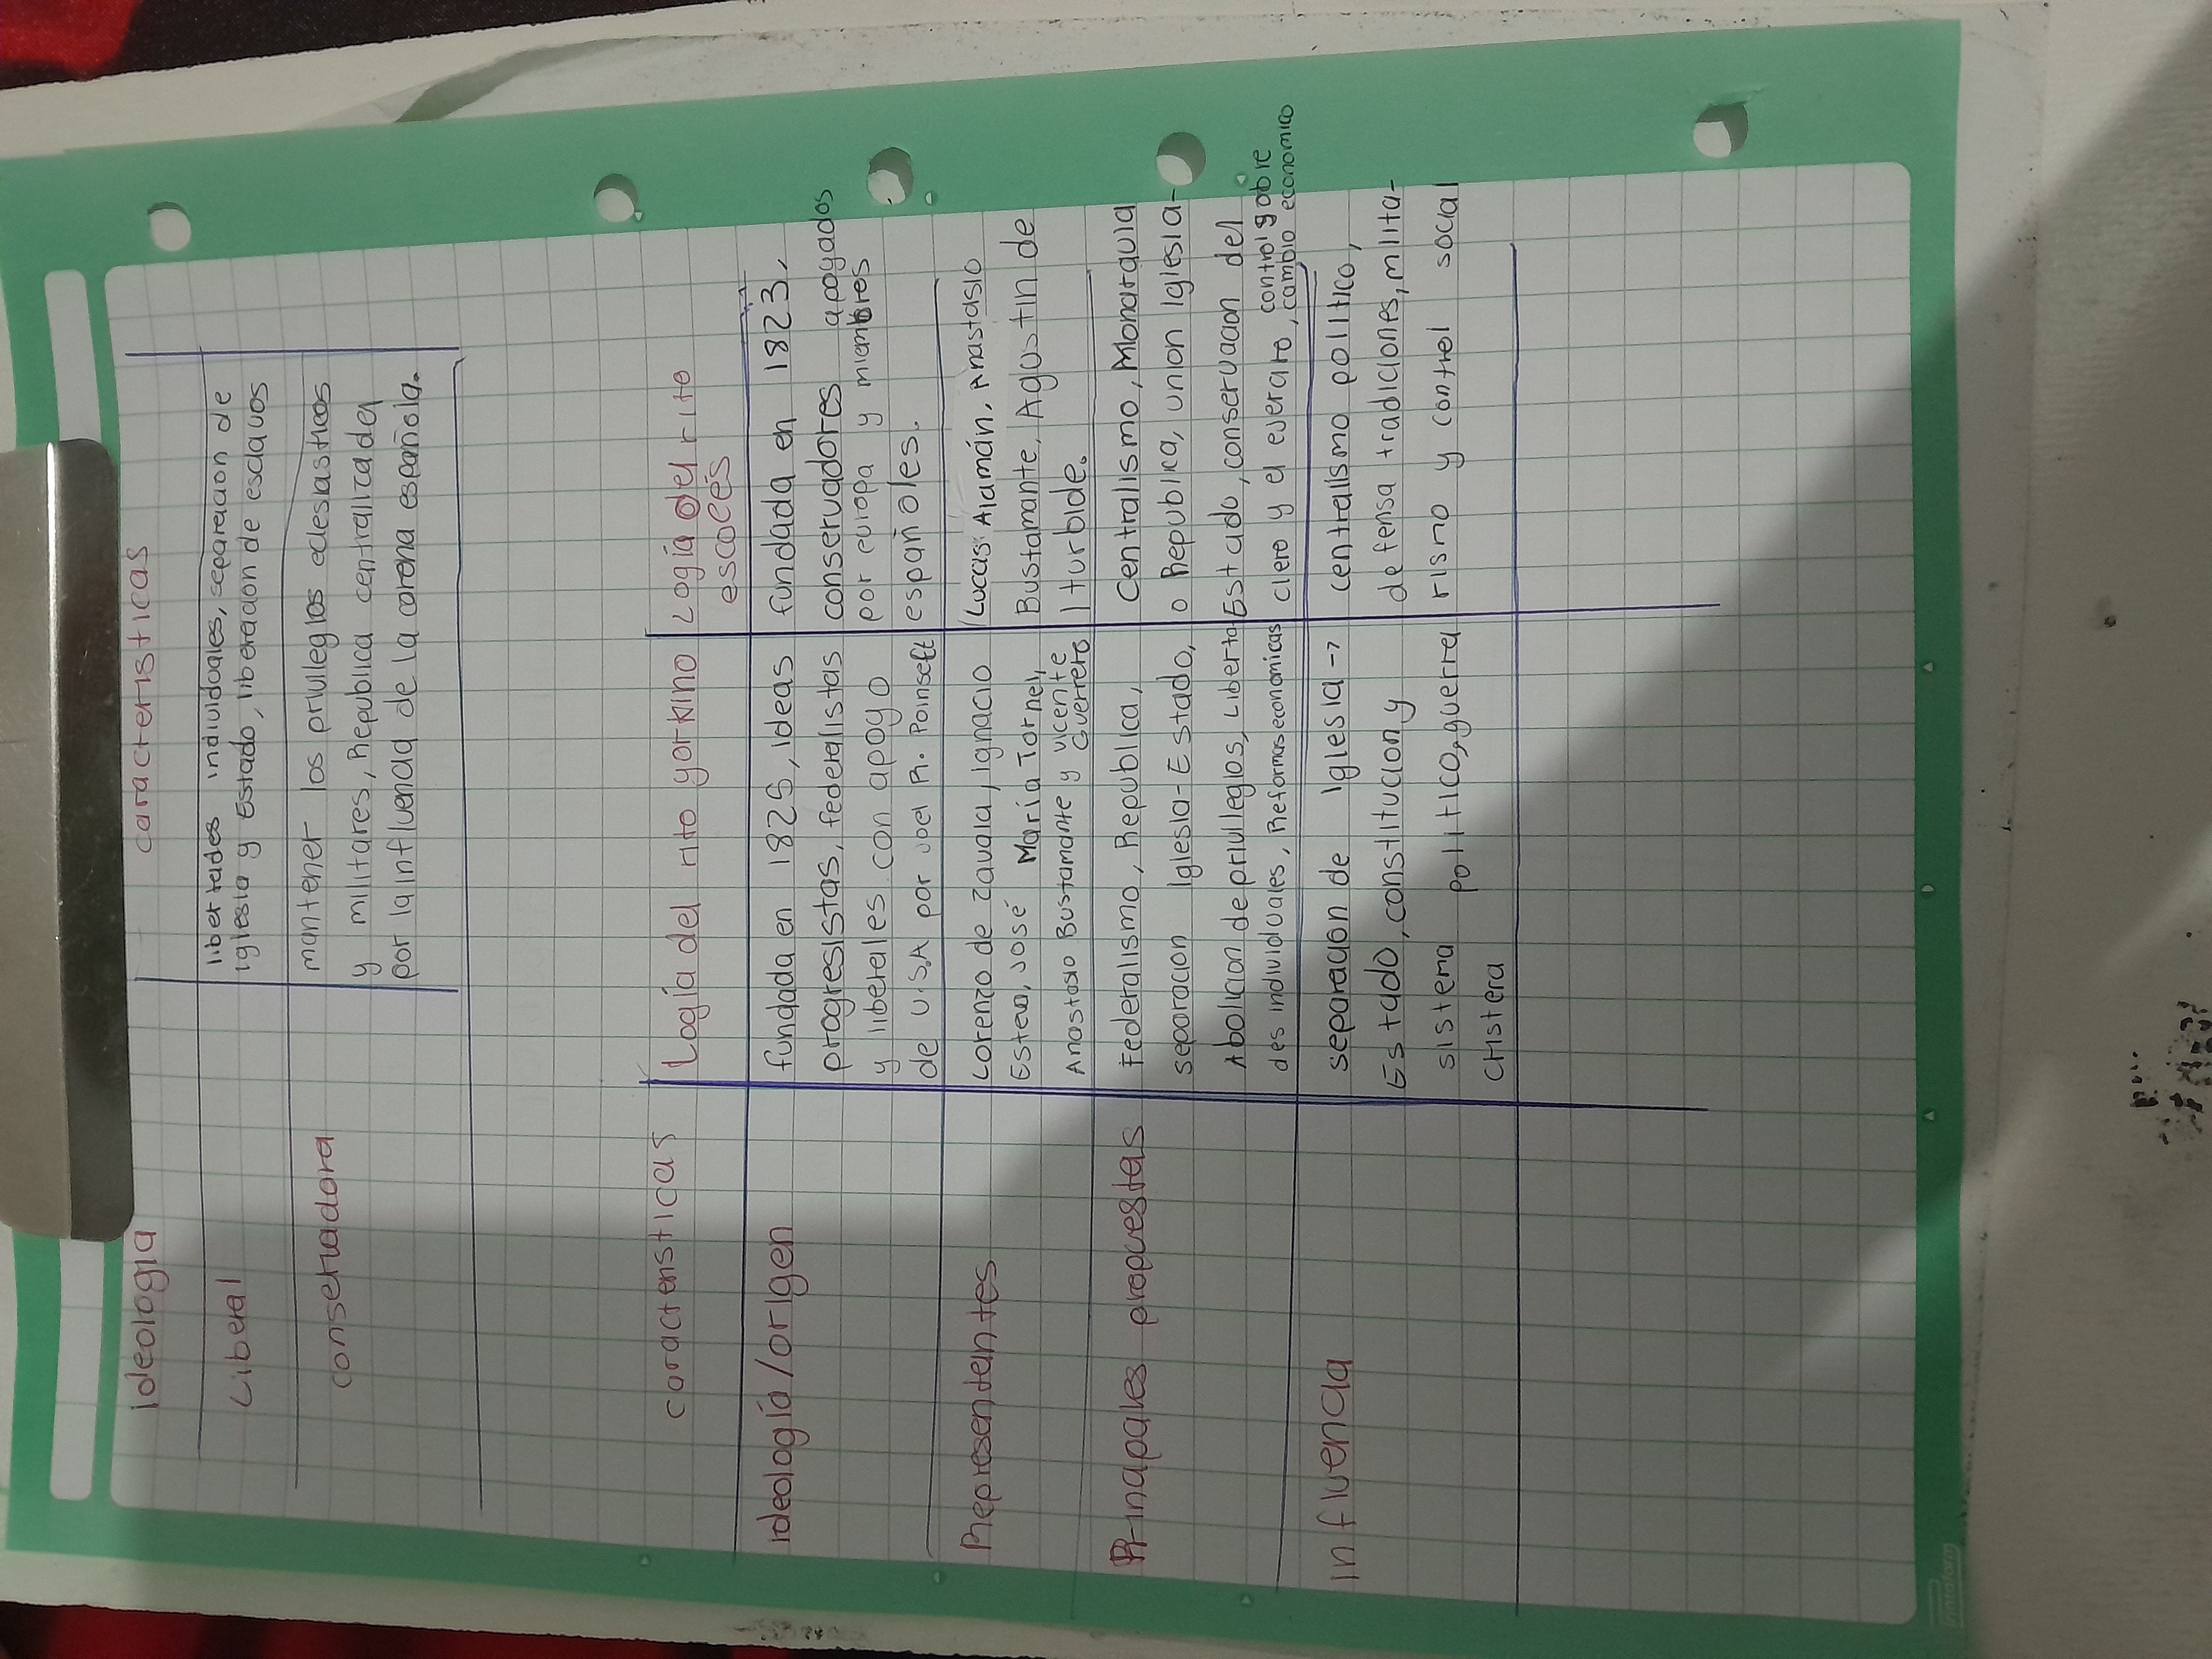 ideologia caracteristicas
Liberal libertades individuales, separacion de
iglesia y Estado, liberacion de esclavos
conservadora mantener los privilegios eclesiasticos
y militares, Republica centralizada
por la influencia de la corona española.
caracteristicas Logia del rito yorkino Logia del rito
escocés
ideología/origen
fundada en 1825, ideas
progresistas, federalistas
y liberales con apoyo
de U.S.A por Joel R. Poinsett
fundada en 1823,
conservadores apoyados
por europa y miembres
españoles.
Representantes
Lorenzo de Zavala, Ignacio
Esteva, José María Tornel,
Anastasio Bustamante y vicente
Guerrero
Luccas Alamán, Anastasio
Bustamante, Agustin de
Iturbide.
Principales propuestas
Federalismo, Republica,
separacion Iglesia-Estado,
Abolicion de privilegios, Liberta-
des individuales, Reformas economicas
Centralismo, Monarquia
o Republica, union Iglesia-
Estado, conservacion del
clero y el ejerato, control sobre
cambio economico
influencia
separacion de Iglesia-
Estado, constitucion y
sistema politico, guerra
cristera
centralismo politico,
defensa tradiciones, milita-
rismo y control social